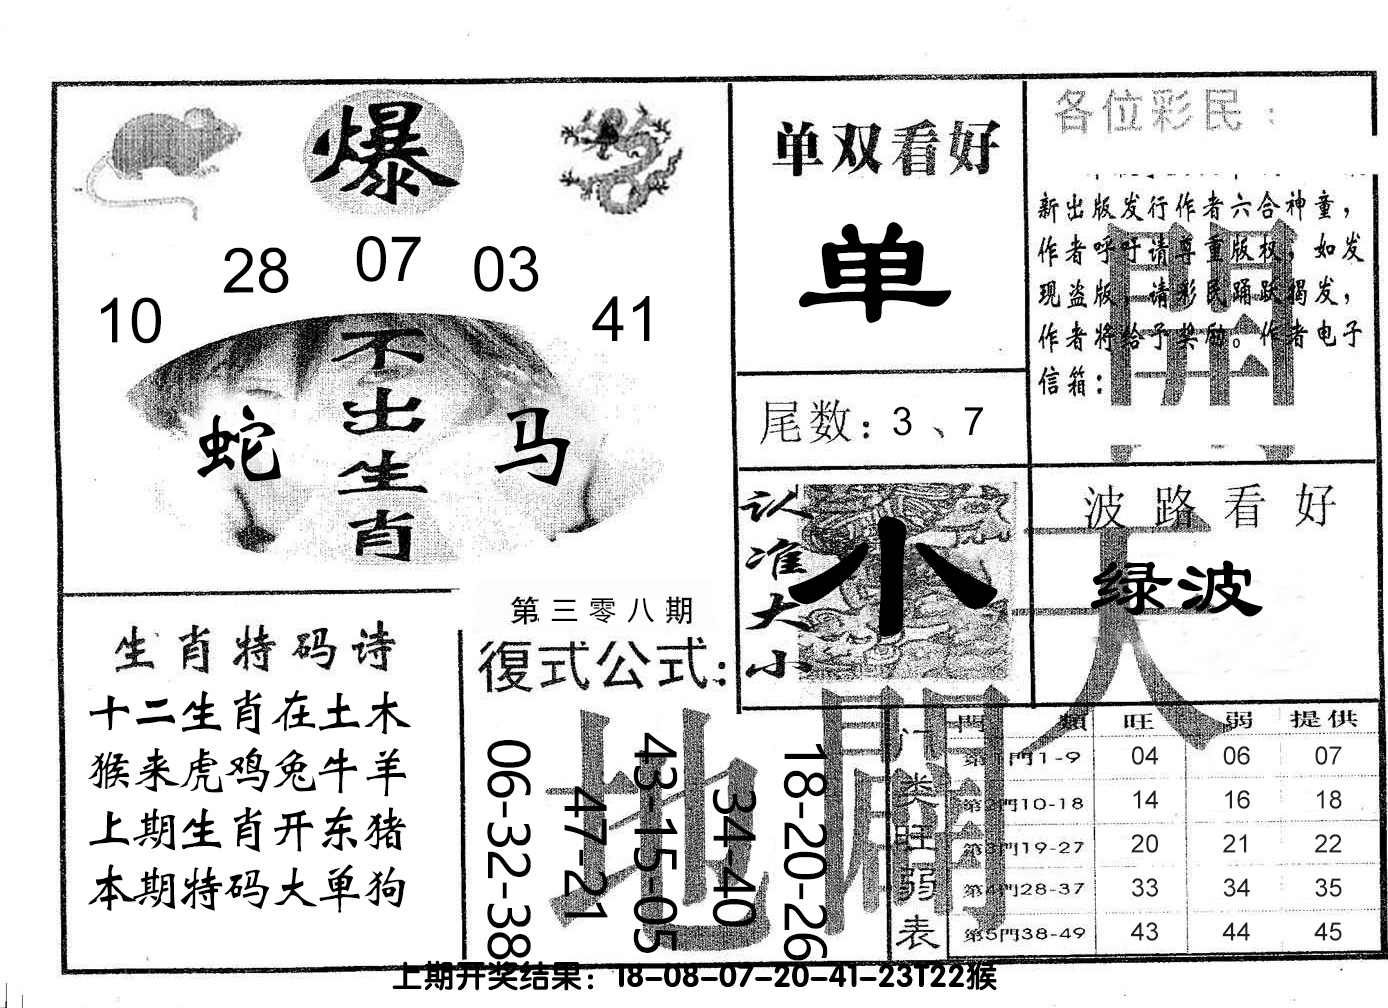 爆
28 07 03
10 41
不出生肖
蛇 马
单双看好
单
尾数：3、7
认准大小
小
各位彩民：
新出版发行作者六合神童，
作者呼吁请尊重版权，如发
现盗版，请彩民踊跃揭发，
作者将给予奖励。作者电子
信箱：
波路看好
绿波
生肖特码诗
十二生肖在土木
猴来虎鸡兔牛羊
上期生肖开东猪
本期特码大单狗
第三零八期
復式公式：
06-32-38
47-21
43-15-05
34-40
18-20-26
天
地
開
門类旺弱表
門類 旺 弱 提供
第1門1-9 04 06 07
第2門10-18 14 16 18
第3門19-27 20 21 22
第4門28-37 33 34 35
第5門38-49 43 44 45
上期开奖结果：18-08-07-20-41-23T22猴